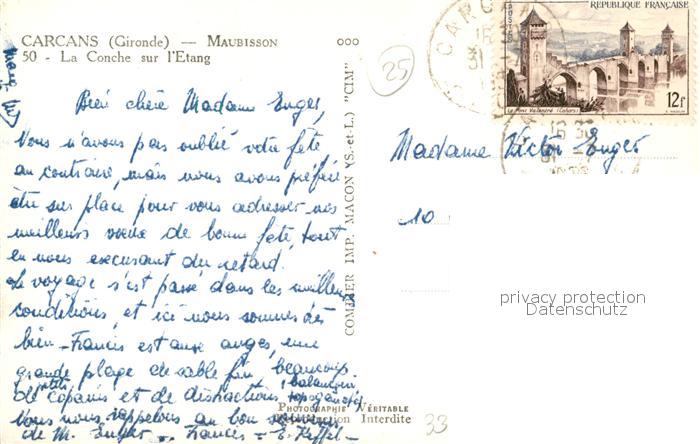 CARCANS (Gironde) — MAUBISSON
50 - La Conche sur l'Etang
Bien chère Madame Enger,
Vous n'avons pas oublié votre fête
au contraire, mais nous avons préféré
être sur place pour vous adresser nos
meilleurs vœux de bonne fête, tout
en nous excusant du retard.
Le voyage s'est passé dans les meilleures
conditions, et ici nous sommes très
bien - Francis est aux anges, une
grande plage de sable fin, beaucoup
de petits copains et de distractions, balançoir,
Vous nous rappelons au bon souvenir
de M. Enger -. Francis - E.
PHOTOGRAPHIE VÉRITABLE
Interdite
COMBIER IMP. MACON (S.-et-L.) "CIM"
25
CARCANS
REPUBLIQUE FRANÇAISE
POSTES
Le Pont Valentré (Cahors)
12f
Madame Victor Enger
10
privacy protection
Datenschutz
33